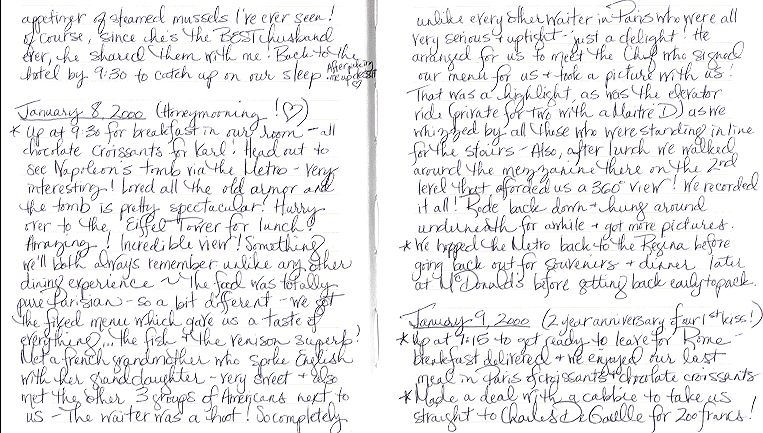 appetizer of steamed mussels I've ever seen!
Of course, since he's the BEST husband
ever, he shared them with me! Back to the
hotel by 9:30 to catch up on our sleep After giving
January 8, 2000 (Honeymooning! ♡)
* Up at 9:30 for breakfast in our room - all
chocolate croissants for Karl! Head out to
see Napoleon's tomb via the Metro - very
interesting! Loved all the old armor and
the tomb is pretty spectacular! Hurry
over to the Eiffel Tower for lunch!
Amazing! Incredible view! Something
we'll both always remember unlike any other
dining experience ~ The food was totally
pure Parisian - so a bit different - we got
the fixed menu which gave us a taste of
everything... the fish + the venison superb!
Met a french grandmother who spoke English
with her granddaughter - very sweet + also
met the other 3 groups of Americans next to
us - The waiter was a hoot! So completely
unlike every other waiter in Paris who were all
very serious + uptight - just a delight! He
arranged for us to meet the Chef who signed
our menu for us + took a picture with us!
That was a highlight, as was the elevator
ride (private for two with a Maitre D) as we
whizzed by all those who were standing in line
for the stairs - Also, after lunch we walked
around the mezzanine there on the 2nd
level that afforded us a 360° view! We recorded
it all! Rode back down + hung around
underneath for awhile + got more pictures.
* We hopped the Metro back to the Regina before
going back out for souvenirs + dinner later
at McDonald's before getting back early to pack.
January 9, 2000 (2 year anniversary of our 1st kiss!)
* Up at 9:15 to get ready to leave for Rome -
breakfast delivered + we enjoyed our last
meal in Paris of croissants + chocolate croissants
* Made a deal with a cabbie to take us
straight to Charles De Gaulle for 200 francs!